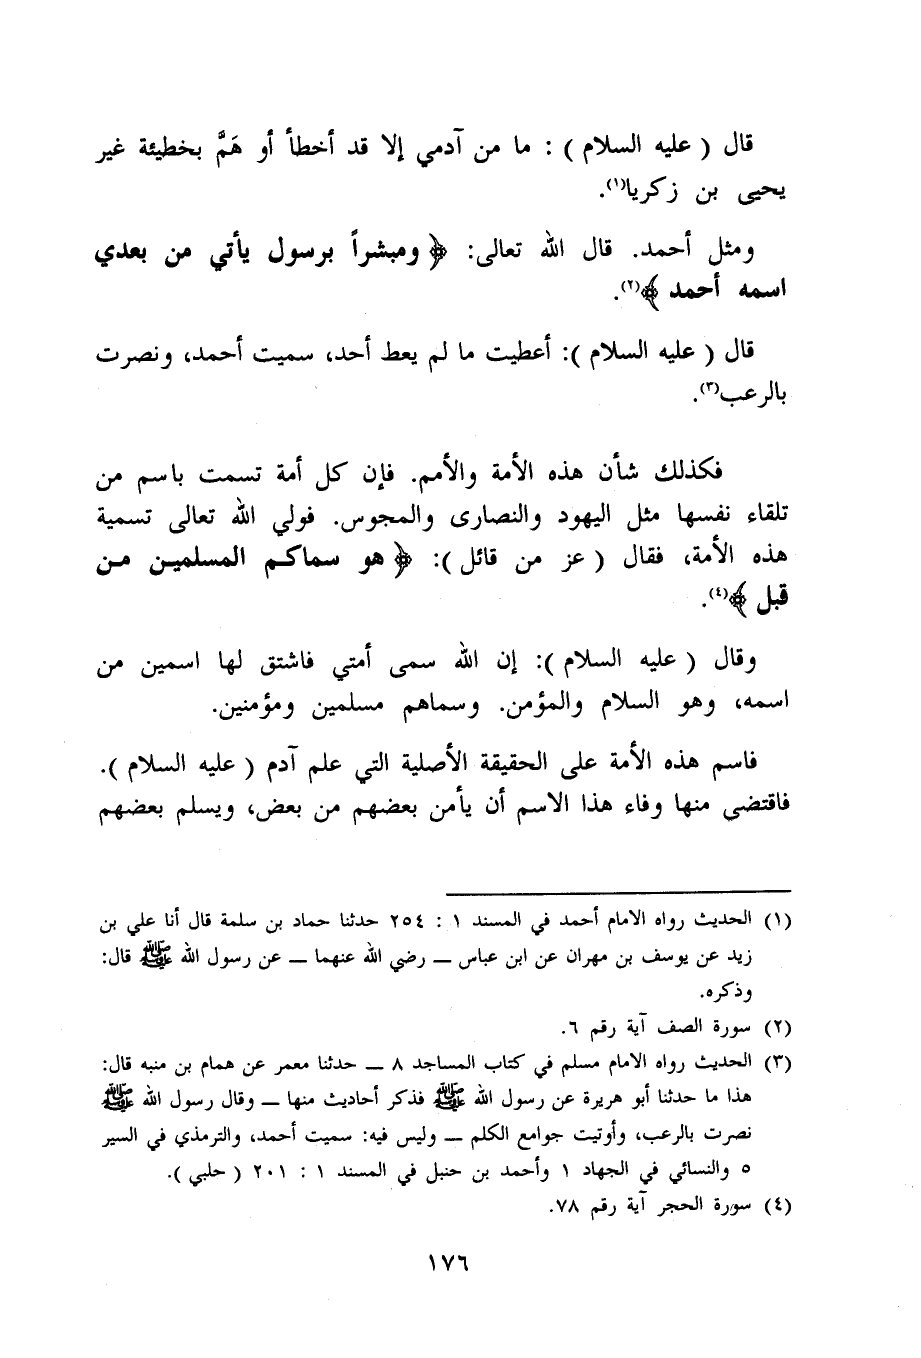 قال ( عليه السلام ) : ما من آدمي إلا قد أخطأ أو هَمَّ بخطيئة غير
يحيى بن زكريا(١).
ومثل أحمد. قال الله تعالى: ﴿ ومبشراً برسول يأتي من بعدي
اسمه أحمد ﴾(٢).
قال ( عليه السلام ): أعطيت ما لم يعط أحد، سميت أحمد، ونصرت
بالرعب(٣).
فكذلك شأن هذه الأمة والأمم. فإن كل أمة تسمت باسم من
تلقاء نفسها مثل اليهود والنصارى والمجوس. فولي الله تعالى تسمية
هذه الأمة، فقال ( عز من قائل ): ﴿ هو سماكم المسلمين من
قبل ﴾(٤).
وقال ( عليه السلام ): إن الله سمى أمتي فاشتق لها اسمين من
اسمه، وهو السلام والمؤمن. وسماهم مسلمين ومؤمنين.
فاسم هذه الأمة على الحقيقة الأصلية التي علم آدم ( عليه السلام ).
فاقتضي منها وفاء هذا الاسم أن يأمن بعضهم من بعض، ويسلم بعضهم
(١) الحديث رواه الامام أحمد في المسند ١ : ٢٥٤ حدثنا حماد بن سلمة قال أنا علي بن
زيد عن يوسف بن مهران عن ابن عباس ــ رضي الله عنهما ــ عن رسول الله ﷺ قال:
وذكره.
(٢) سورة الصف آية رقم ٦.
(٣) الحديث رواه الامام مسلم في كتاب المساجد ٨ ــ حدثنا معمر عن همام بن منبه قال:
هذا ما حدثنا أبو هريرة عن رسول الله ﷺ فذكر أحاديث منها ــ وقال رسول الله ﷺ
نصرت بالرعب، وأوتيت جوامع الكلم ــ وليس فيه: سميت أحمد، والترمذي في السير
٥ والنسائي في الجهاد ١ وأحمد بن حنبل في المسند ١ : ٢٠١ ( حلبي ).
(٤) سورة الحجر آية رقم ٧٨.
١٧٦